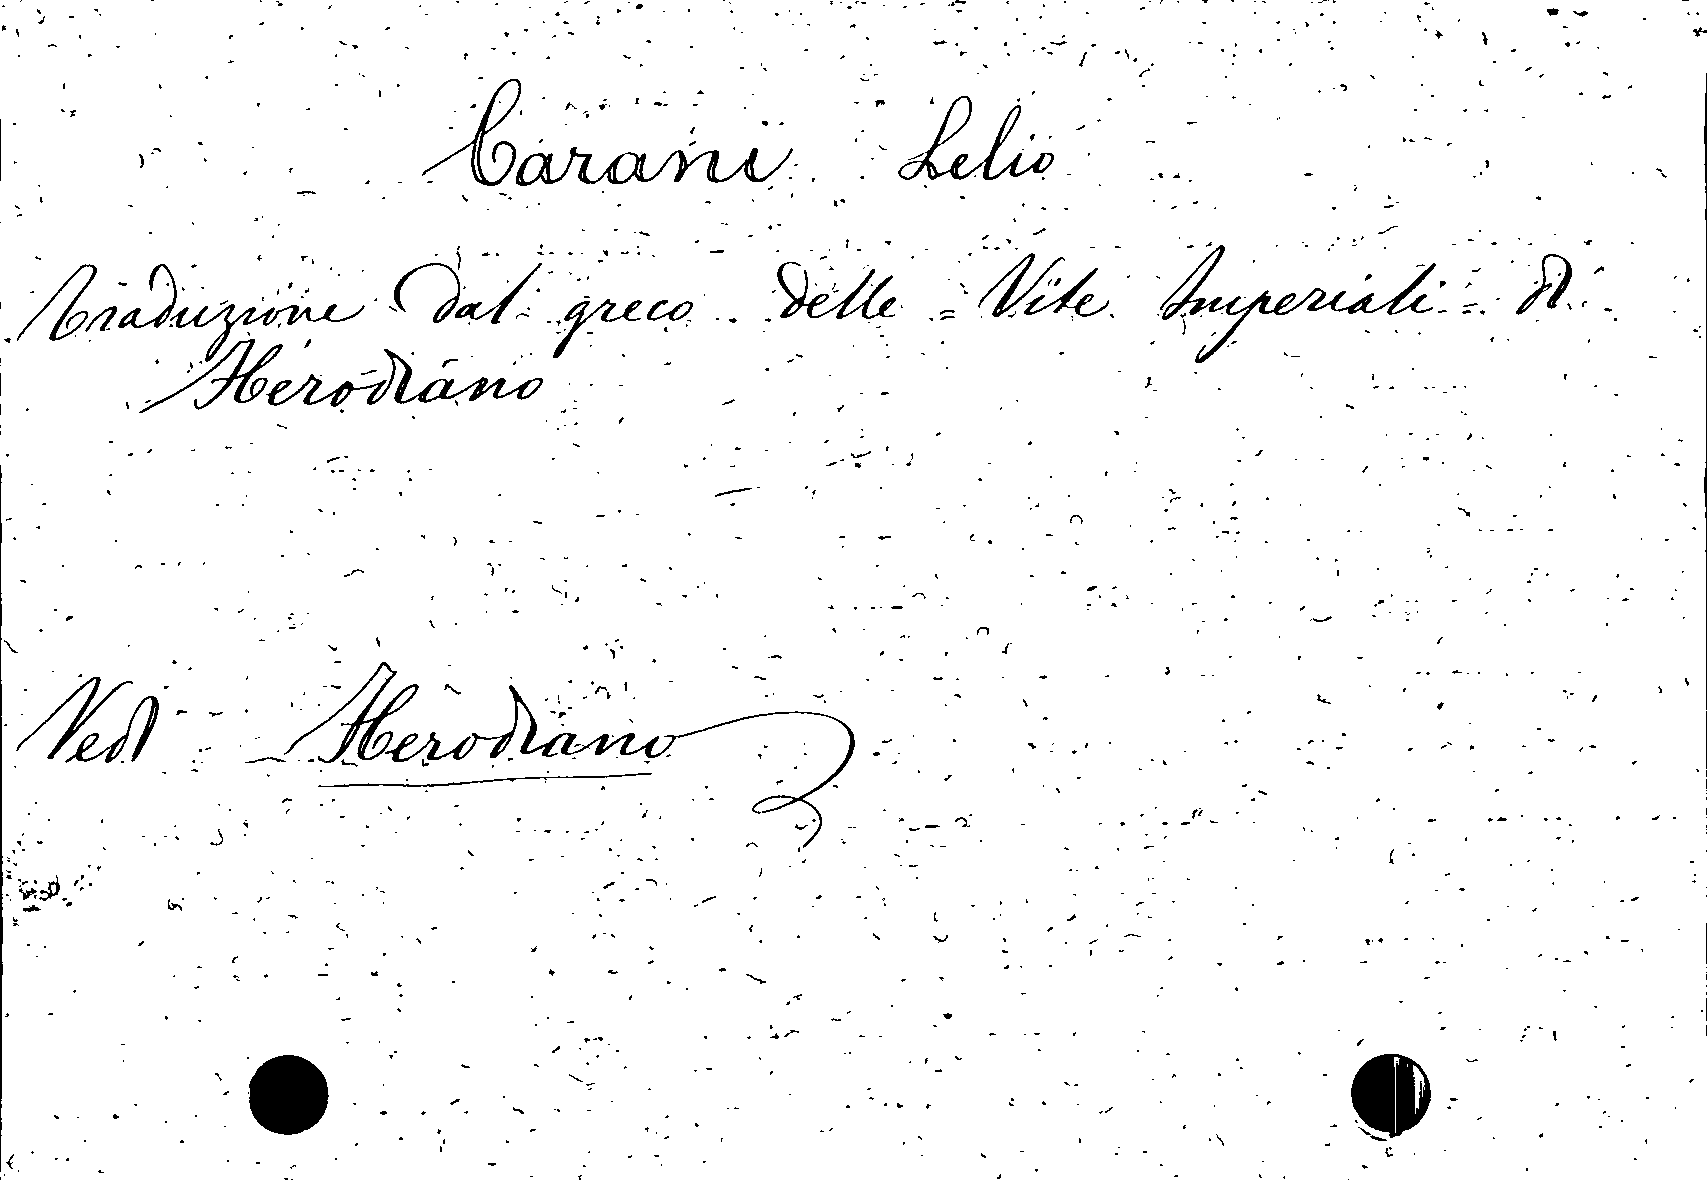 Carani Lelio
Traduzione dal greco delle = Vite Imperiali = di
Herodiano
Vedi Herodiano